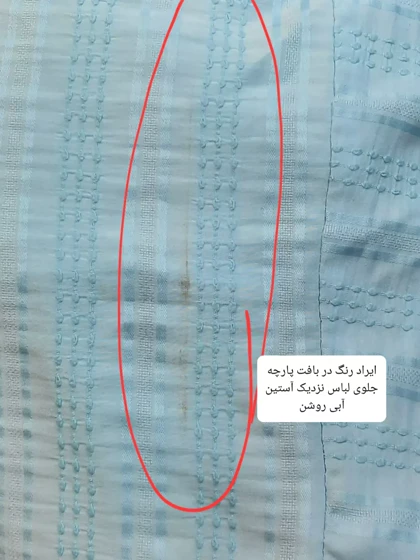 ایراد رنگ در بافت پارچه
جلوی لباس نزدیک آستین
آبی روشن